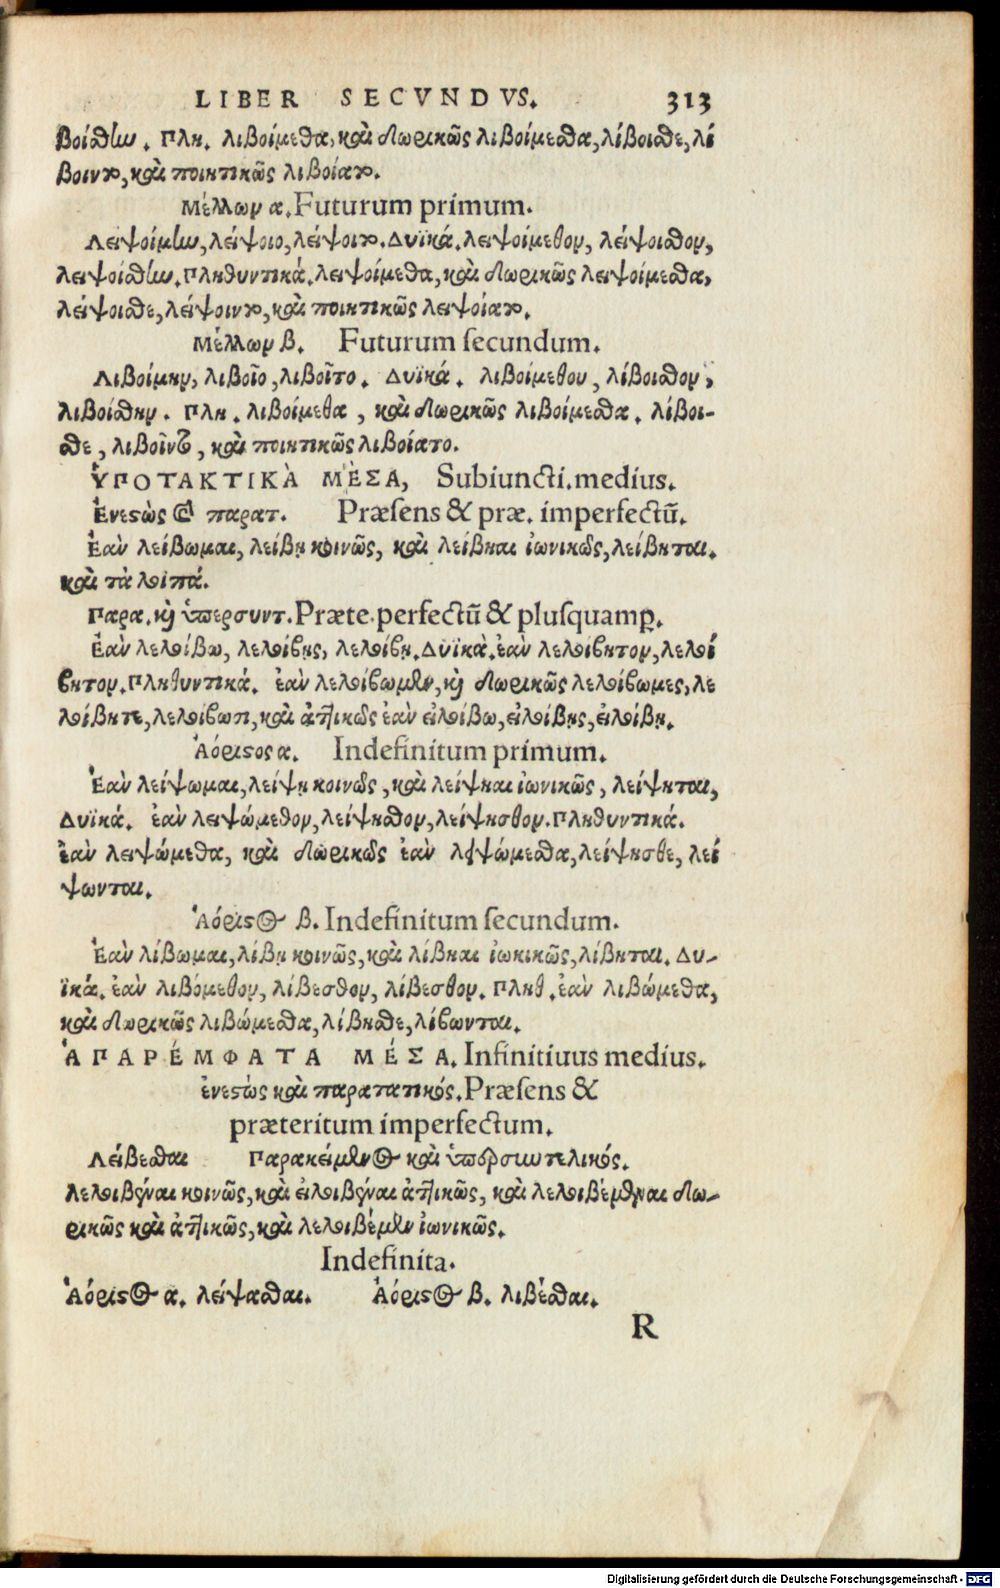 LIBER SECVNDVS. 313
βοίσθην. Πλη. λιβοίμεθα, καὶ Δωρικῶς λιβοίμεσθα, λίβοισθε, λί
βοιντο, καὶ ποιητικῶς λιβοίατο.
Μέλλων α. Futurum primum.
Λειψοίμην, λείψοιο, λείψοιτο. Δυϊκά. λειψοίμεθον, λείψοισθον,
λειψοίσθην. Πληθυντικά. λειψοίμεθα, καὶ Δωρικῶς λειψοίμεσθα,
λείψοισθε, λείψοιντο, καὶ ποιητικῶς λειψοίατο.
Μέλλων β. Futurum secundum.
Λιβοίμην, λιβοῖο, λιβοῖτο. Δυϊκά. λιβοίμεθον, λίβοισθον,
λιβοίσθην. Πλη. λιβοίμεθα, καὶ Δωρικῶς λιβοίμεσθα. λίβοι-
σθε, λιβοῖντο, καὶ ποιητικῶς λιβοίατο.
ὙΠΟΤΑΚΤΙΚᾺ ΜΈΣΑ, Subiuncti. medius.
Ἐνεστὼς καὶ παρατ. Præsens & præ. imperfectū.
Ἐὰν λείβωμαι, λείβῃ κοινῶς, καὶ λείβηαι ἰωνικῶς, λείβηται.
καὶ τὰ λοιπά.
Παρα. καὶ ὑπερσυντ. Præte. perfectū & plusquamp.
Ἐὰν λελοίβω, λελοίβῃς, λελοίβῃ. Δυϊκὰ. ἐὰν λελοίβητον, λελοί
βητον. Πληθυντικά. ἐὰν λελοίβωμεν, καὶ Δωρικῶς λελοίβωμες, λε
λοίβητε, λελοίβωσι, καὶ ἀττικῶς ἐὰν εἰλοίβω, εἰλοίβῃς, εἰλοίβῃ.
Ἀόριστος α. Indefinitum primum.
Ἐὰν λείψωμαι, λείψῃ κοινῶς, καὶ λείψηαι ἰωνικῶς, λείψηται,
Δυϊκά. ἐὰν λειψώμεθον, λείψησθον, λείψησθον. Πληθυντικά.
ἐὰν λειψώμεθα, καὶ Δωρικῶς ἐὰν λειψώμεσθα, λείψησθε, λεί
ψωνται.
Ἀόριστος β. Indefinitum secundum.
Ἐὰν λίβωμαι, λίβῃ κοινῶς, καὶ λίβηαι ἰωκικῶς, λίβηται. Δυ-
ϊκά. ἐὰν λιβόμεθον, λίβεσθον, λίβεσθον. Πληθ. ἐὰν λιβώμεθα,
καὶ Δωρικῶς λιβώμεσθα, λίβησθε, λίβωνται.
ἈΠΑΡΈΜΦΑΤΑ ΜΈΣΑ. Infinitiuus medius.
ἐνεστὼς καὶ παρατατικός. Præsens &
præteritum imperfectum.
Λείβεσθαι Παρακείμενος καὶ ὑπερσυντελικός.
λελοιβέναι κοινῶς, καὶ εἰλοιβέναι ἀττικῶς, καὶ λελοιβέμεναι Δω-
ρικῶς καὶ ἀττικῶς, καὶ λελοιβέμεν ἰωνικῶς.
Indefinita.
Ἀόριστος α. λείψασθαι. Ἀόριστος β. λιβέσθαι.
R
Digitalisierung gefördert durch die Deutsche Forschungsgemeinschaft - DFG